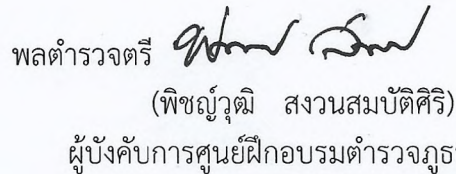 พลตำรวจตรี
(พิชญ์วุฒิ สงวนสมบัติศิริ)
ผู้บังคับการศูนย์ฝึกอบรมตำรวจภูธร